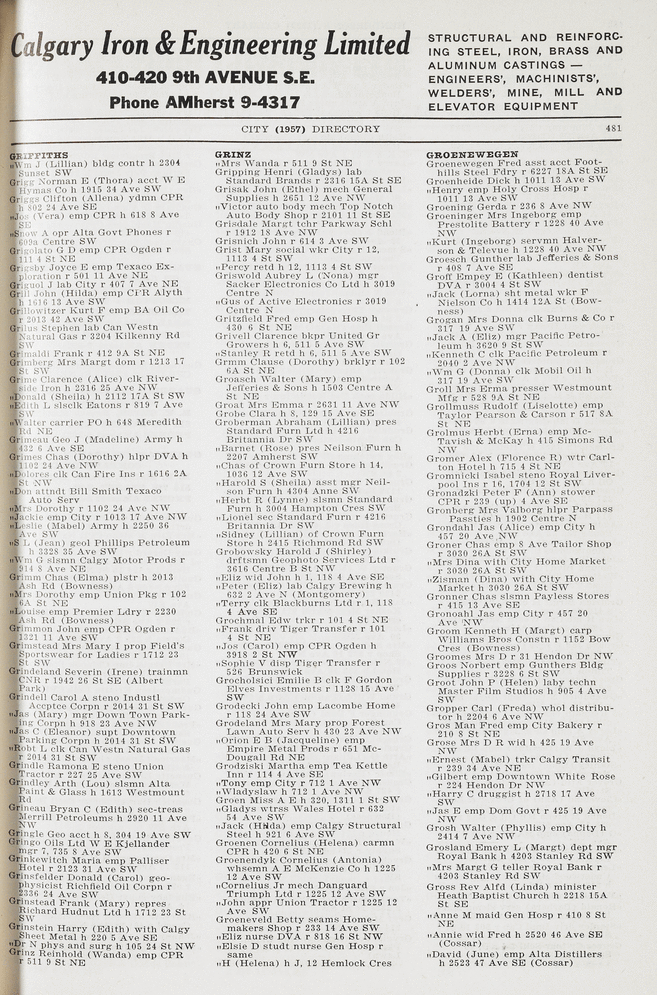 Calgary Iron & Engineering Limited
410-420 9th AVENUE S.E.
Phone AMherst 9-4317
STRUCTURAL AND REINFORC-
ING STEEL, IRON, BRASS AND
ALUMINUM CASTINGS —
ENGINEERS', MACHINISTS',
WELDERS', MINE, MILL AND
ELEVATOR EQUIPMENT
CITY (1957) DIRECTORY 481
GRIFFITHS
"Wm J (Lillian) bldg contr h 2304
Sunset SW
Grigg Norman E (Thora) acct W E
Hymas Co h 1915 34 Ave SW
Griggs Clifton (Allena) ydmn CPR
h 802 24 Ave SE
"Jos (Vera) emp CPR h 618 8 Ave
SE
"Snow A opr Alta Govt Phones r
609a Centre SW
Grigolato G D emp CPR Ogden r
111 4 St NE
Grigsby Joyce E emp Texaco Ex-
ploration r 501 11 Ave NE
Griguol J lab City r 407 7 Ave NE
Grill John (Hilda) emp CPR Alyth
h 1616 13 Ave SW
Grillowitzer Kurt F emp BA Oil Co
r 2013 42 Ave SW
Grilus Stephen lab Can Westn
Natural Gas r 3204 Kilkenny Rd
SW
Grimaldi Frank r 412 9A St NE
Grimberg Mrs Margt dom r 1213 17
St SW
Grime Clarence (Alice) clk River-
side Iron h 2316 25 Ave NW
"Donald (Sheila) h 2112 17A St SW
"Edith L slsclk Eatons r 819 7 Ave
SW
"Walter carrier PO h 648 Meredith
Rd NE
Grimeau Geo J (Madeline) Army h
432 6 Ave SE
Grimes Chas (Dorothy) hlpr DVA h
1102 24 Ave NW
"Dolores clk Can Fire Ins r 1616 2A
St NW
"Don attndt Bill Smith Texaco
Auto Serv
"Mrs Dorothy r 1102 24 Ave NW
"Jackie emp City r 1013 17 Ave NW
"Leslie (Mabel) Army h 2250 36
Ave SW
"S L (Jean) geol Phillips Petroleum
h 3328 35 Ave SW
"Wm G slsmn Calgary Motor Prods r
214 8 Ave NE
Grimm Chas (Elma) plstr h 2013
Ash Rd (Bowness)
"Mrs Dorothy emp Union Pkg r 102
6A St NE
"Louise emp Premier Ldry r 2230
Ash Rd (Bowness)
Grimmon John emp CPR Ogden r
1321 11 Ave SW
Grimstead Mrs Mary I prop Field's
Sportswear for Ladies r 1712 23
St SW
Grindeland Severin (Irene) trainmn
CNR r 1942 26 St SE (Albert
Park)
Grindell Carol A steno Industl
Accptce Corpn r 2014 31 St SW
"Jas (Mary) mgr Down Town Park-
ing Corpn h 918 23 Ave NW
"Jas C (Eleanor) supt Downtown
Parking Corpn h 2014 31 St SW
"Robt L clk Can Westn Natural Gas
r 2014 31 St SW
Grindle Ramona E steno Union
Tractor r 227 25 Ave SW
Grindley Arth (Lou) slsmn Alta
Paint & Glass h 1613 Westmount
Rd
Grineau Bryan C (Edith) sec-treas
Merrill Petroleums h 2920 11 Ave
NW
Gringle Geo acct h 8, 304 19 Ave SW
Gringo Oils Ltd W E Kjellander
mgr 7, 735 8 Ave SW
Grinkewitch Maria emp Palliser
Hotel r 2123 31 Ave SW
Grinsfelder Donald (Carol) geo-
physicist Richfield Oil Corpn r
2336 24 Ave SW
Grinstead Frank (Mary) repres
Richard Hudnut Ltd h 1712 23 St
SW
Grinstein Harry (Edith) with Calgary
Sheet Metal h 220 5 Ave SE
"Dr N phys and surg h 105 24 St NW
Grinz Reinhold (Wanda) emp CPR
r 511 9 St NE
GRINZ
"Mrs Wanda r 511 9 St NE
Gripping Henri (Gladys) lab
Standard Brands r 2316 15A St SE
Grisak John (Ethel) mech General
Supplies h 2651 12 Ave NW
"Victor auto body mech Top Notch
Auto Body Shop r 2101 11 St SE
Grisdale Margt tchr Parkway Schl
r 1912 18 Ave NW
Grisnich John r 614 3 Ave SW
Grist Mary social wkr City r 12,
1113 4 St SW
"Percy retd h 12, 1113 4 St SW
Griswold Aubrey L (Nona) mgr
Sacker Electronics Co Ltd h 3019
Centre N
"Gus of Active Electronics r 3019
Centre N
Gritzfield Fred emp Gen Hosp h
430 6 St NE
Grivell Clarence bkpr United Gr
Growers h 6, 511 5 Ave SW
"Stanley R retd h 6, 511 5 Ave SW
Grmin Clause (Dorothy) brklyr r 102
6A St NE
Groasch Walter (Mary) emp
Jefferies & Sons h 1503 Centre A
St NE
Groat Mrs Emma r 2631 11 Ave NW
Grobe Clara h 8, 129 15 Ave SE
Groberman Abraham (Lillian) pres
Standard Furn Ltd h 4216
Britannia Dr SW
"Barnet (Rose) pres Neilson Furn h
2207 Amherst SW
"Chas of Crown Furn Store h 14,
1036 12 Ave SW
"Harold S (Sheila) asst mgr Neil-
son Furn h 4304 Anne SW
"Herbt R (Lynne) slsmn Standard
Furn h 3004 Hampton Cres SW
"Lionel sec Standard Furn r 4216
Britannia Dr SW
"Sidney (Lillian) of Crown Furn
Store h 2415 Richmond Rd SW
Grobowsky Harold J (Shirley)
drftsmn Geophoto Services Ltd r
3616 Centre B St NW
"Eliz wid John h 1, 118 4 Ave SE
"Peter (Eliz) lab Calgary Brewing h
632 2 Ave N (Montgomery)
"Terry clk Blackburns Ltd r 1, 118
4 Ave SE
Grochmal Edw trkr r 101 4 St NE
"Frank driv Tiger Transfer r 101
4 St NE
"Jos (Carol) emp CPR Ogden h
3918 2 St NW
"Sophie V disp Tiger Transfer r
526 Brunswick
Grocholsici Emilie B clk F Gordon
Elves Investments r 1128 15 Ave
SW
Grodecki John emp Lacombe Home
r 118 24 Ave SW
Grodeland Mrs Mary prop Forest
Lawn Auto Serv h 430 23 Ave NW
"Orion E B (Jacqueline) emp
Empire Metal Prods r 651 Mc-
Dougall Rd NE
Grodziski Martha emp Tea Kettle
Inn r 114 4 Ave SE
"Tony emp City r 712 1 Ave NW
"Wladyslaw h 712 1 Ave NW
Groen Miss A E h 320, 1311 1 St SW
"Gladys wtrss Wales Hotel r 632
54 Ave SW
"Jack (Hilda) emp Calgy Structural
Steel h 921 6 Ave SW
Groenen Cornelius (Helena) carmn
CPR h 420 6 St NE
Groenendyk Cornelius (Antonia)
whsemn A E McKenzie Co h 1225
12 Ave SW
"Cornelius Jr mech Danguard
Triumph Ltd r 1225 12 Ave SW
"John appr Union Tractor r 1225 12
Ave SW
Groeneveld Betty seams Home-
makers Shop r 233 14 Ave SW
"Eliz nurse DVA r 818 16 St NW
"Elsie D studt nurse Gen Hosp r
same
"H (Helena) h J, 12 Hemlock Cres
GROENEWEGEN
Groenewegen Fred asst acct Foot-
hills Steel Fdry r 6227 18A St SE
Groenheide Dick h 1011 13 Ave SW
"Henry emp Holy Cross Hosp r
1011 13 Ave SW
Groening Gerda r 236 8 Ave NW
Groeninger Mrs Ingeborg emp
Prestolite Battery r 1228 40 Ave
NW
"Kurt (Ingeborg) servmn Halver-
son & Televue h 1228 40 Ave NW
Groesch Gunther lab Jefferies & Sons
r 408 7 Ave SE
Groff Empey E (Kathleen) dentist
DVA r 3004 4 St SW
"Jack (Lorna) sht metal wkr F
Nielson Co h 1414 12A St (Bow-
ness)
Grogan Mrs Donna clk Burns & Co r
317 19 Ave SW
"Jack A (Eliz) mgr Pacific Petro-
leum h 3620 9 St SW
"Kenneth C clk Pacific Petroleum r
2040 2 Ave NW
"Wm G (Donna) clk Mobil Oil h
317 19 Ave SW
Groll Mrs Erma presser Westmount
Mfg r 528 9A St NE
Grollmuss Rudolf (Liselotte) emp
Taylor Pearson & Carson r 517 8A
St NE
Grolmus Herbt (Erna) emp Mc-
Tavish & McKay h 415 Simons Rd
NW
Gromer Alex (Florence R) wtr Carl-
ton Hotel h 715 4 St NE
Gromnicki Isabel steno Royal Liver-
pool Ins r 16, 1704 12 St SW
Gronadzki Peter F (Ann) stower
CPR r 239 (up) 4 Ave SE
Gronberg Mrs Valborg hlpr Parpass
Passties h 1902 Centre N
Grondahl Jas (Alice) emp City h
457 20 Ave NW
Groner Chas emp 8 Ave Tailor Shop
r 3030 26A St SW
"Mrs Dina with City Home Market
r 3030 26A St SW
"Zisman (Dina) with City Home
Market h 3030 26A St SW
Gronner Chas slsmn Payless Stores
r 415 13 Ave SE
Gronoahl Jas emp City r 457 20
Ave NW
Groom Kenneth H (Margt) carp
Williams Bros Constn r 1152 Bow
Cres (Bowness)
Groomes Mrs D r 31 Hendon Dr NW
Groos Norbert emp Gunthers Bldg
Supplies r 3228 6 St SW
Groot John P (Helen) laby techn
Master Film Studios h 905 4 Ave
SW
Gropper Carl (Freda) whol distribu-
tor h 2204 6 Ave NW
Gros Man Fred emp City Bakery r
210 8 St NE
Grose Mrs D R wid h 425 19 Ave
NW
"Ernest (Mabel) trkr Calgy Transit
r 239 34 Ave NE
"Gilbert emp Downtown White Rose
r 224 Hendon Dr NW
"Harry C druggist h 2718 17 Ave
SW
"Jas E emp Dom Govt r 425 19 Ave
NW
Grosh Walter (Phyllis) emp City h
2414 7 Ave NW
Grosland Emery L (Margt) dept mgr
Royal Bank h 4203 Stanley Rd SW
"Mrs Margt G teller Royal Bank r
4203 Stanley Rd SW
Gross Rev Alfd (Linda) minister
Heath Baptist Church h 2218 15A
St SE
"Anne M maid Gen Hosp r 410 8 St
NE
"Annie wid Fred h 2520 46 Ave SE
(Cossar)
"David (June) emp Alta Distillers
h 2523 47 Ave SE (Cossar)